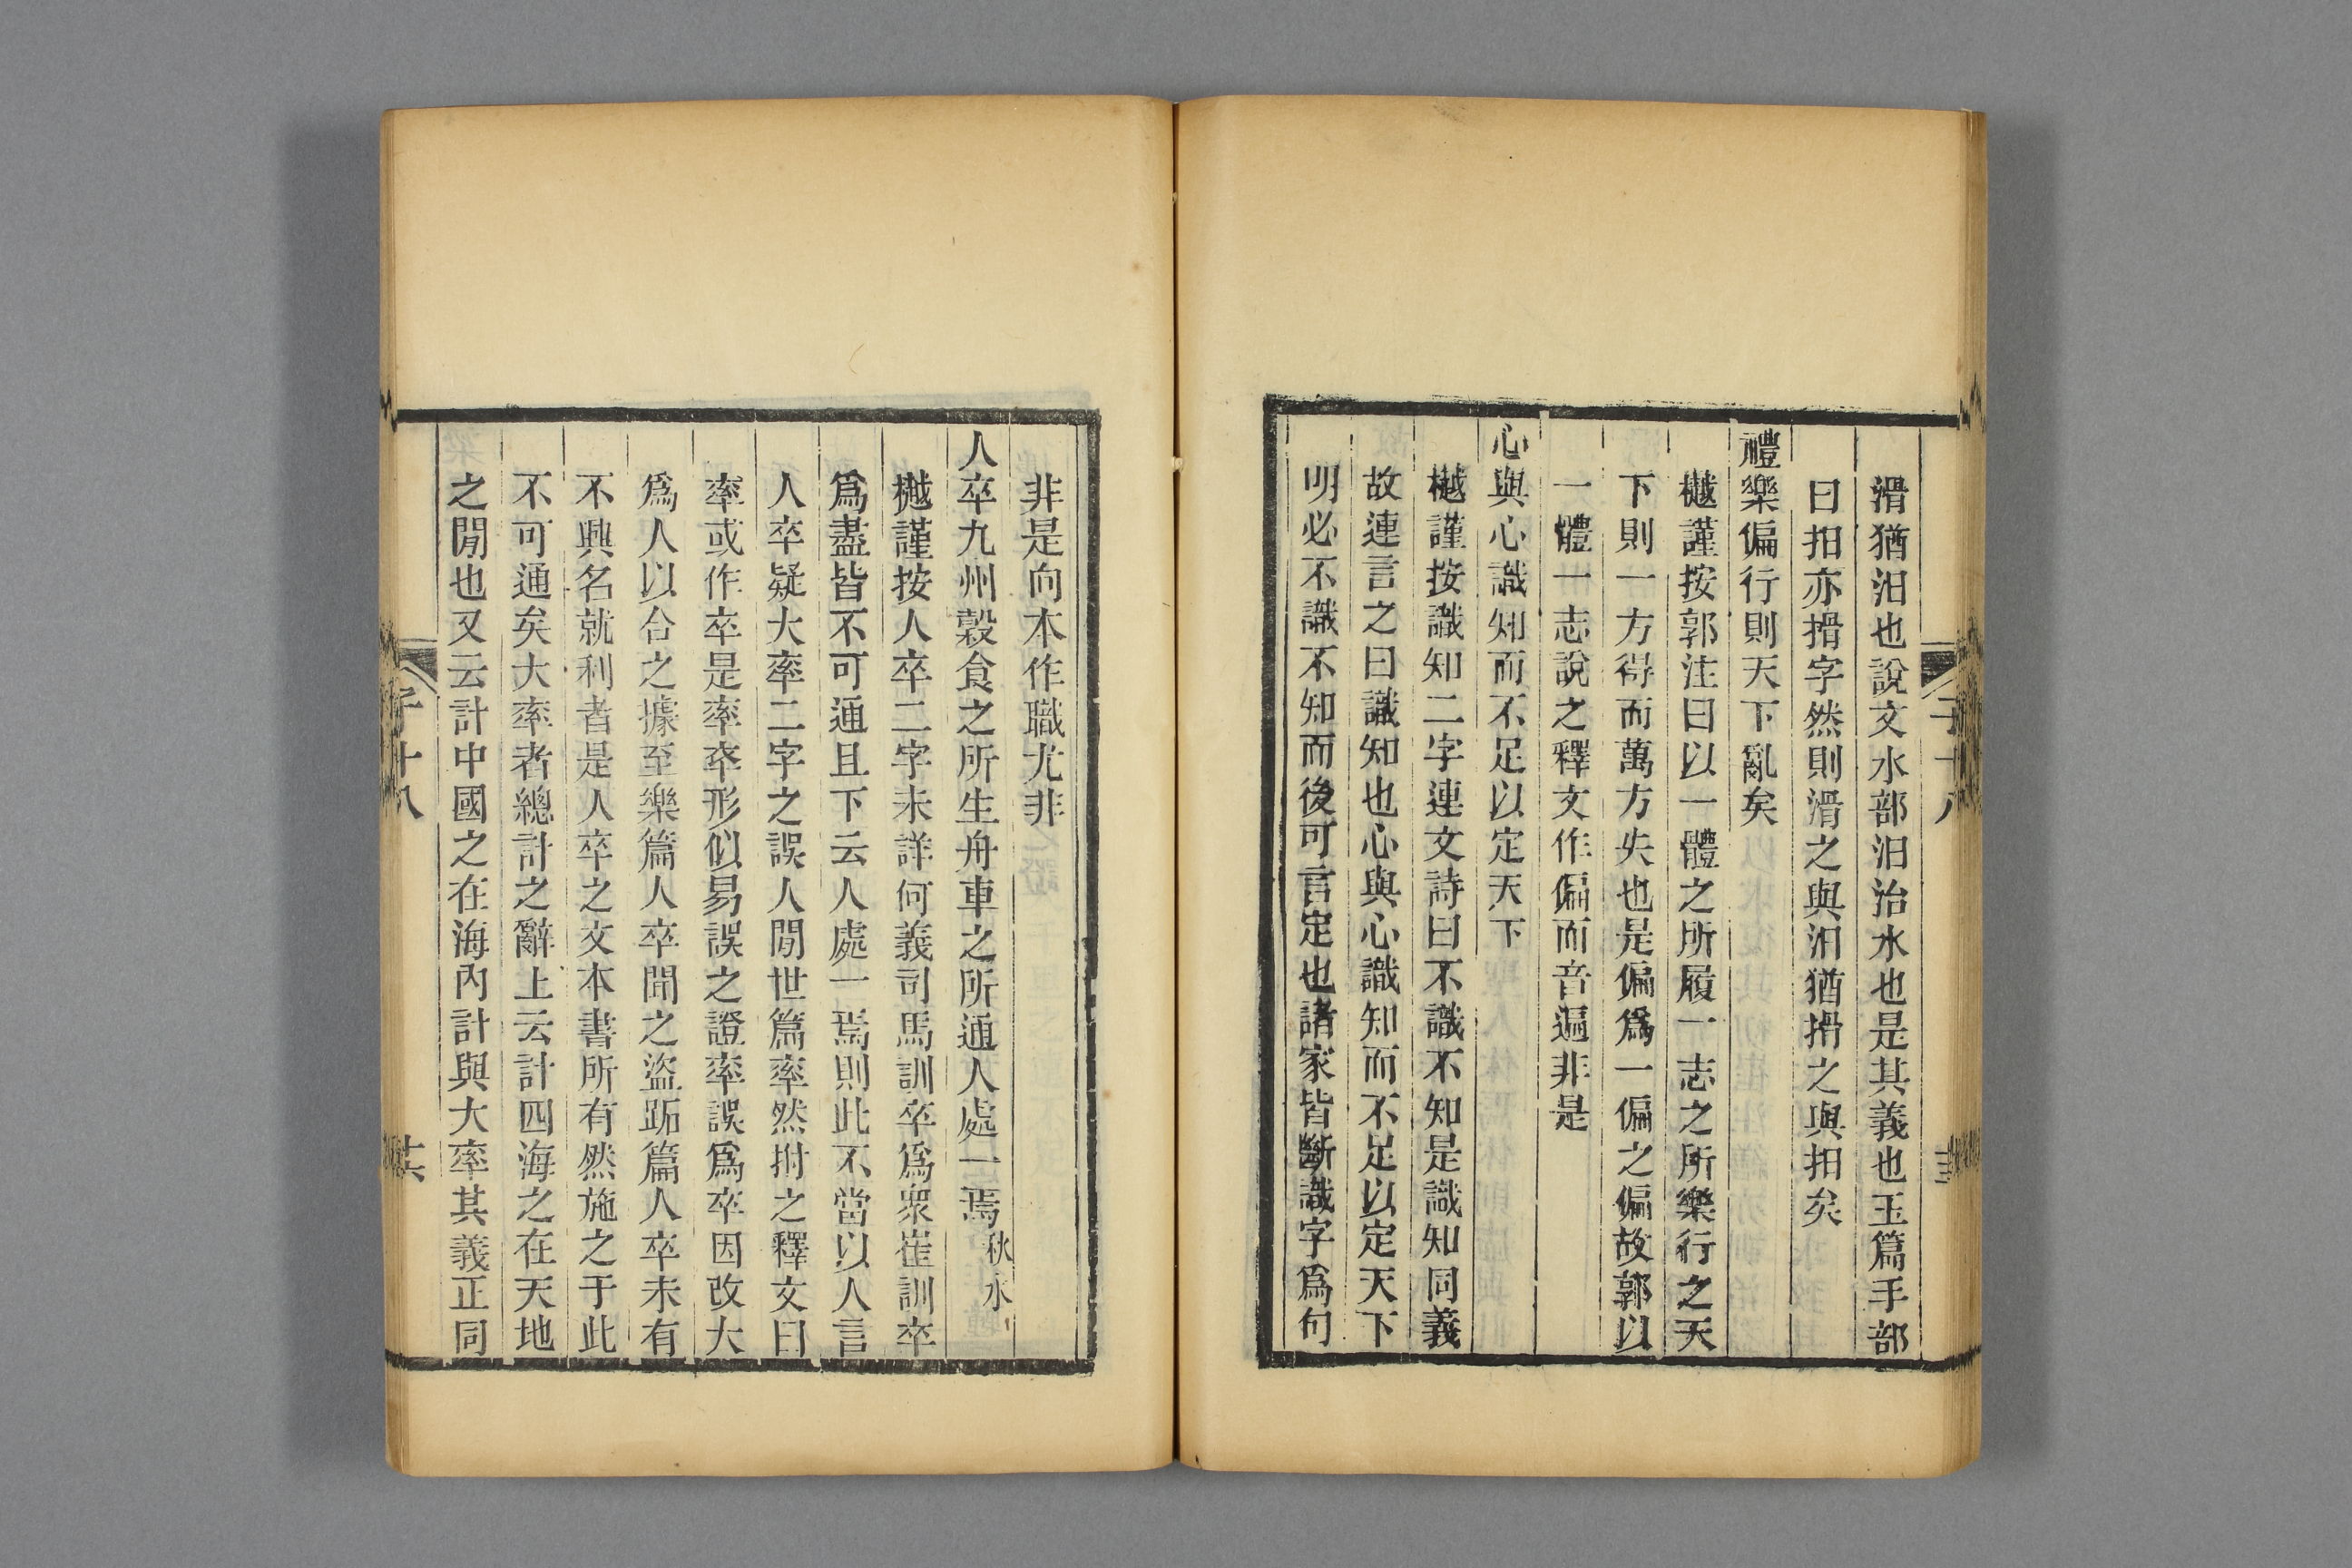 滑猶汩也說文水部汩治水也是其義也玉篇手部
曰抇亦搰字然則滑之與汩猶搰之與抇矣
禮樂偏行則天下亂矣
樾謹按郭注曰以一體之所履一志之所樂行之天
下則一方得而萬方失也是偏爲一偏之偏故郭以
一體一志說之釋文作偏而音遍非是
心與心識知而不足以定天下
樾謹按識知二字連文詩曰不識不知是識知同義
故連言之曰識知也心與心識知而不足以定天下
明必不識不知而後可言定也諸家皆斷識字爲句
非是向本作職尤非
人卒九州穀食之所生舟車之所通人處一焉秋水
樾謹按人卒二字未詳何義司馬訓卒爲衆崔訓卒
爲盡皆不可通且下云人處一焉則此不當以人言
人卒疑大率二字之誤人閒世篇率然拊之釋文曰
率或作卒是率卒形似易誤之證率誤爲卒因改大
爲人以合之據至樂篇人卒聞之盜跖篇人卒未有
不興名就利者是人卒之文本書所有然施之于此
不可通矣大率者總計之辭上云計四海之在天地
之閒也又云計中國之在海內計與大率其義正同
子十八
共